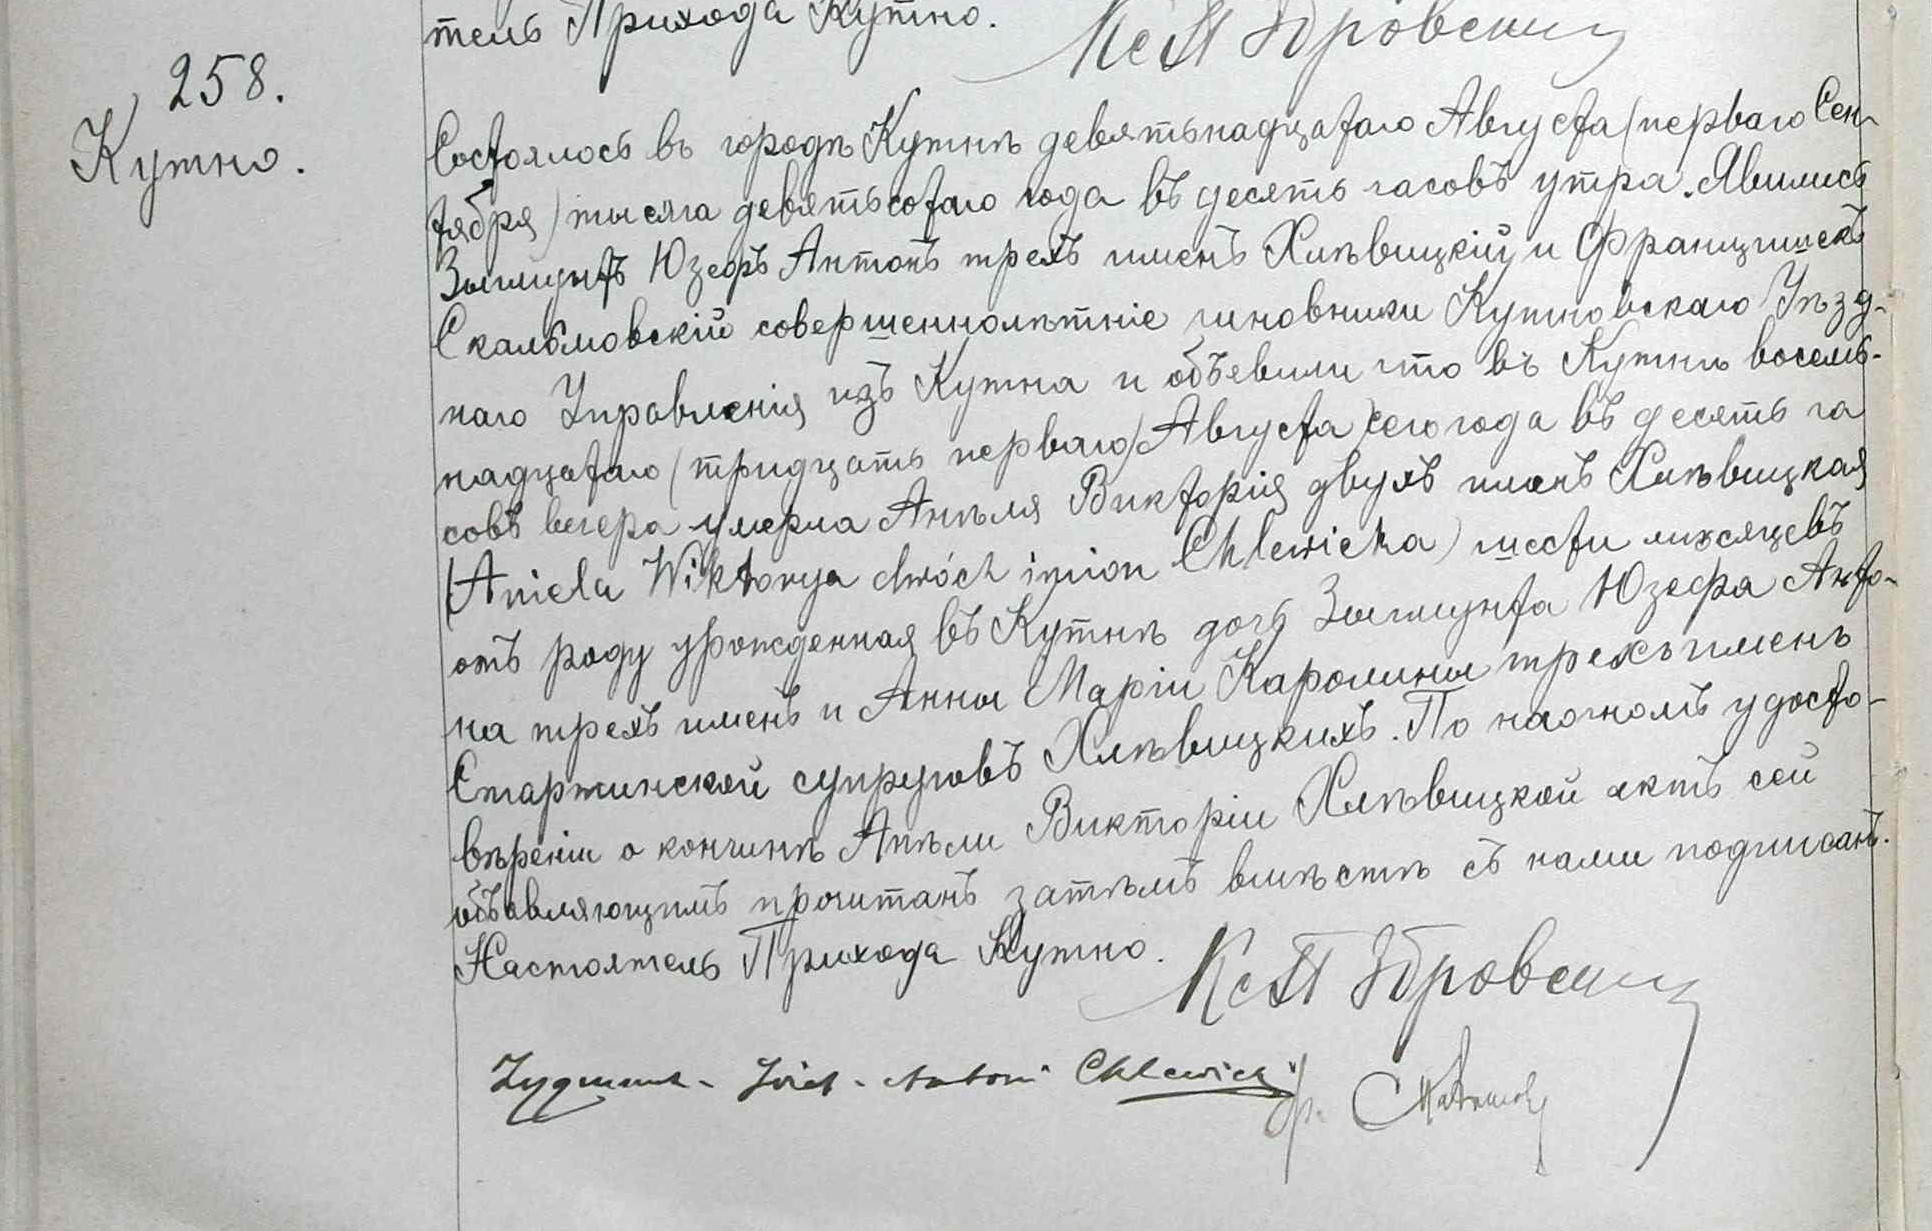 тель Прихода Кутно.
258.
Кутно.
Состоялось въ городѣ Кутнѣ девятьнадцатаго Августа (перваго Сен-
тября) тысяча девятьсотаго года въ десять часовъ утра. Явились
Зыгмунтъ Юзефъ Антонъ трехъ именъ Хлѣвицкій и Францишекъ
Скалъмовскій совершеннолѣтніе чиновники Кутновскаго Уѣзд-
наго Управленія изъ Кутна и объевили что въ Кутнѣ восемь-
надцатаго (тридцать перваго) Августа сего года въ десять ча
совъ вечера умерла Анѣля Викторія двухъ именъ Хлѣвицкая
(Aniela Wiktorya dwóch imion Chlewicka) шести мѣсяцевъ
отъ роду урожденная въ Кутнѣ дочь Зыгмунта Юзефа Анто-
на трехъ именъ и Анны Маріи Каролины трехъ именъ
Старжинской супруговъ Хлѣвицкихъ. По наочномъ удосто-
вѣреніи о кончинѣ Анѣли Викторіи Хлѣвицкой актъ сей
объявляющимъ прочитанъ затѣмъ вмѣстѣ съ нами подписанъ.
Настоятель Прихода Кутно.
Zygmunt - Józef - Antoni Chlewicki